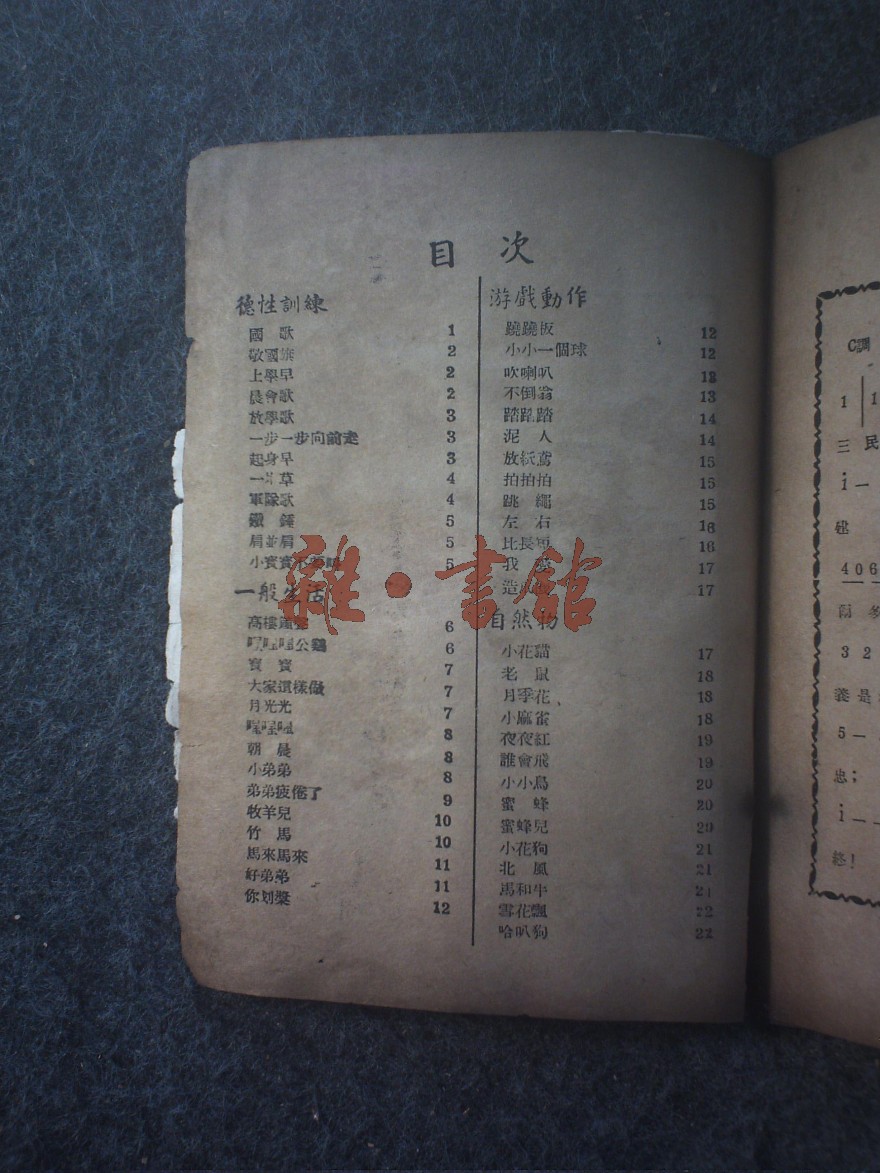 目 次
德性訓練
國 歌 1
敬國旗 2
上學早 2
晨會歌 2
放學歌 3
一步一步向前走 3
起身早 3
草 4
軍隊歌 4
5
肩並肩 5
小寶寶不要 5
一般生活
高樓 6
公鷄 6
寶 寶 7
大家這樣做 7
月光光 7
8
朝 晨 8
小弟弟 8
弟弟疲倦了 9
牧羊兒 10
竹 馬 10
馬來馬來 11
好弟弟 11
你划槳 12
游戲動作
蹺蹺板 12
小小一個球 12
吹喇叭
不倒翁 13
踏踏踏 14
泥 人 14
放紙鳶 15
拍拍拍 15
跳 繩 15
左 右 16
比長 16
我 17
造 17
自然物
小花貓 17
老 鼠 18
月季花 18
小麻雀 18
夜夜紅 19
誰會飛 19
小小鳥 20
蜜 蜂 20
蜜蜂兒 20
小花狗 21
北 風 21
馬和牛 21
雪花飄 22
哈叭狗 22
雜·書館
C調
1 1
三 民
i —
建
4 0 6
爾 多
3 2
義 是
5 —
忠；
i —
終！